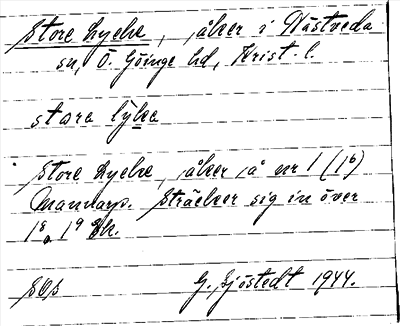 Store Lycke, åker i Nästveda
sn, Ö. Göinge hd, Krist. l.
stɑra lỳkə
Store Lycke, åker å nr 1 (1⁶)
Mannarp. Sträcker sig in över
1⁸ o. 1⁹
G. Sjöstedt 1944.